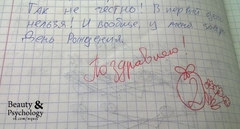 Так не честно! В первый день
нельзя! И вообще, у меня скоро
День Рождения.
Поздравляю!
2
Beauty &
Psychology